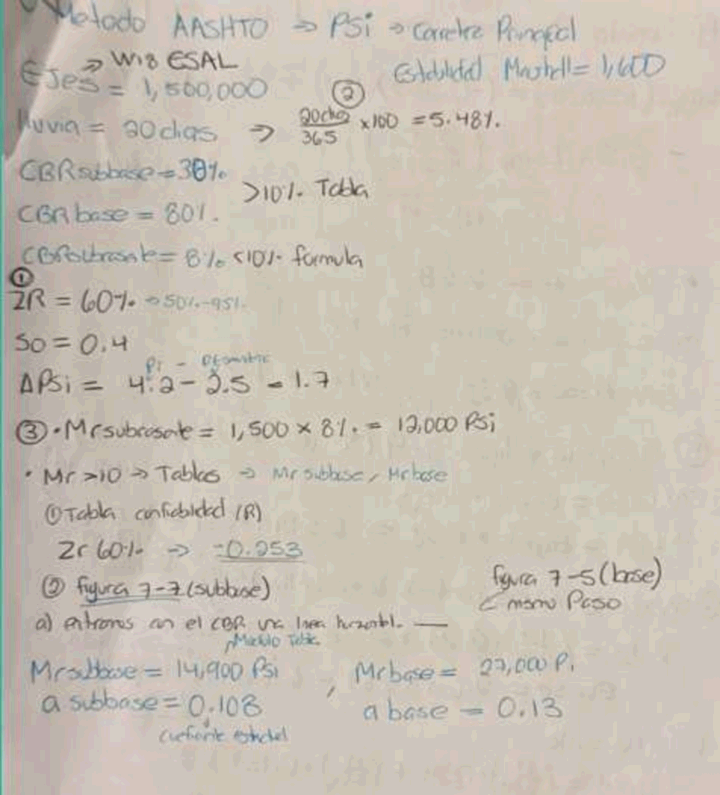 Metodo AASHTO ⇒ PSi ⇒ Carretera Principal
⇒ W18 ESAL
Ejes = 1,500,000
Estabilidad Marshall = 1,600
lluvia = 20 dias ⇒ ② 20 dias/365 x100 = 5.48%.
CBR subbase = 30%
CBR base = 80%.
>10%. Tabla
CBR subrasante = 8% <10%. formula
①
ZR = 60% ⇒ 50%-95%
So = 0.4
Pi -
ΔPSi = 4.2 - 2.5 = 1.7
③ • Mr subrasante = 1,500 x 8%. = 12,000 PSi
• Mr >10 ⇒ Tablas ⇒ Mr subbase, Mr base
① Tabla confiabilidad (R)
Zr 60% ⇒ -0.253
② figura 7-7 (subbase)
figura 7-5 (base)
mismo Paso
a) entramos con el CBR una linea horizontal. —
Modulo Tabla
Mr subbase = 14,900 PSi , Mr base = 27,000 Pi
a subbase = 0.108
a base = 0.13